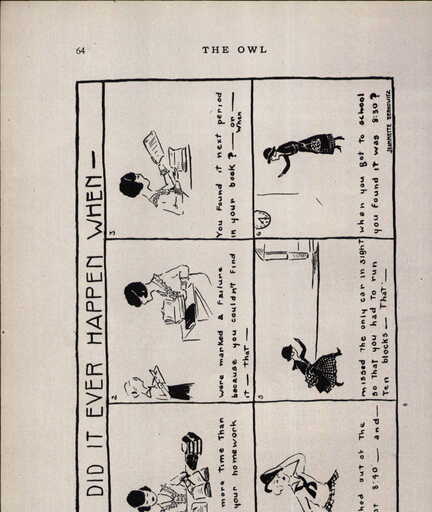 64
THE OWL
DID IT EVER HAPPEN WHEN—
more Time Than
your homework
2
were marked a Failure
because you couldn't find
it — That —
3
You Found it next period
in your book ? — or —
When
hed out of The
8:40 — and —
5
missed The only car in sight
so That you had To run
Ten blocks — That —
6
when you got To school
you found iT was 8:30 ?
JEANNETTE BERKOWITZ